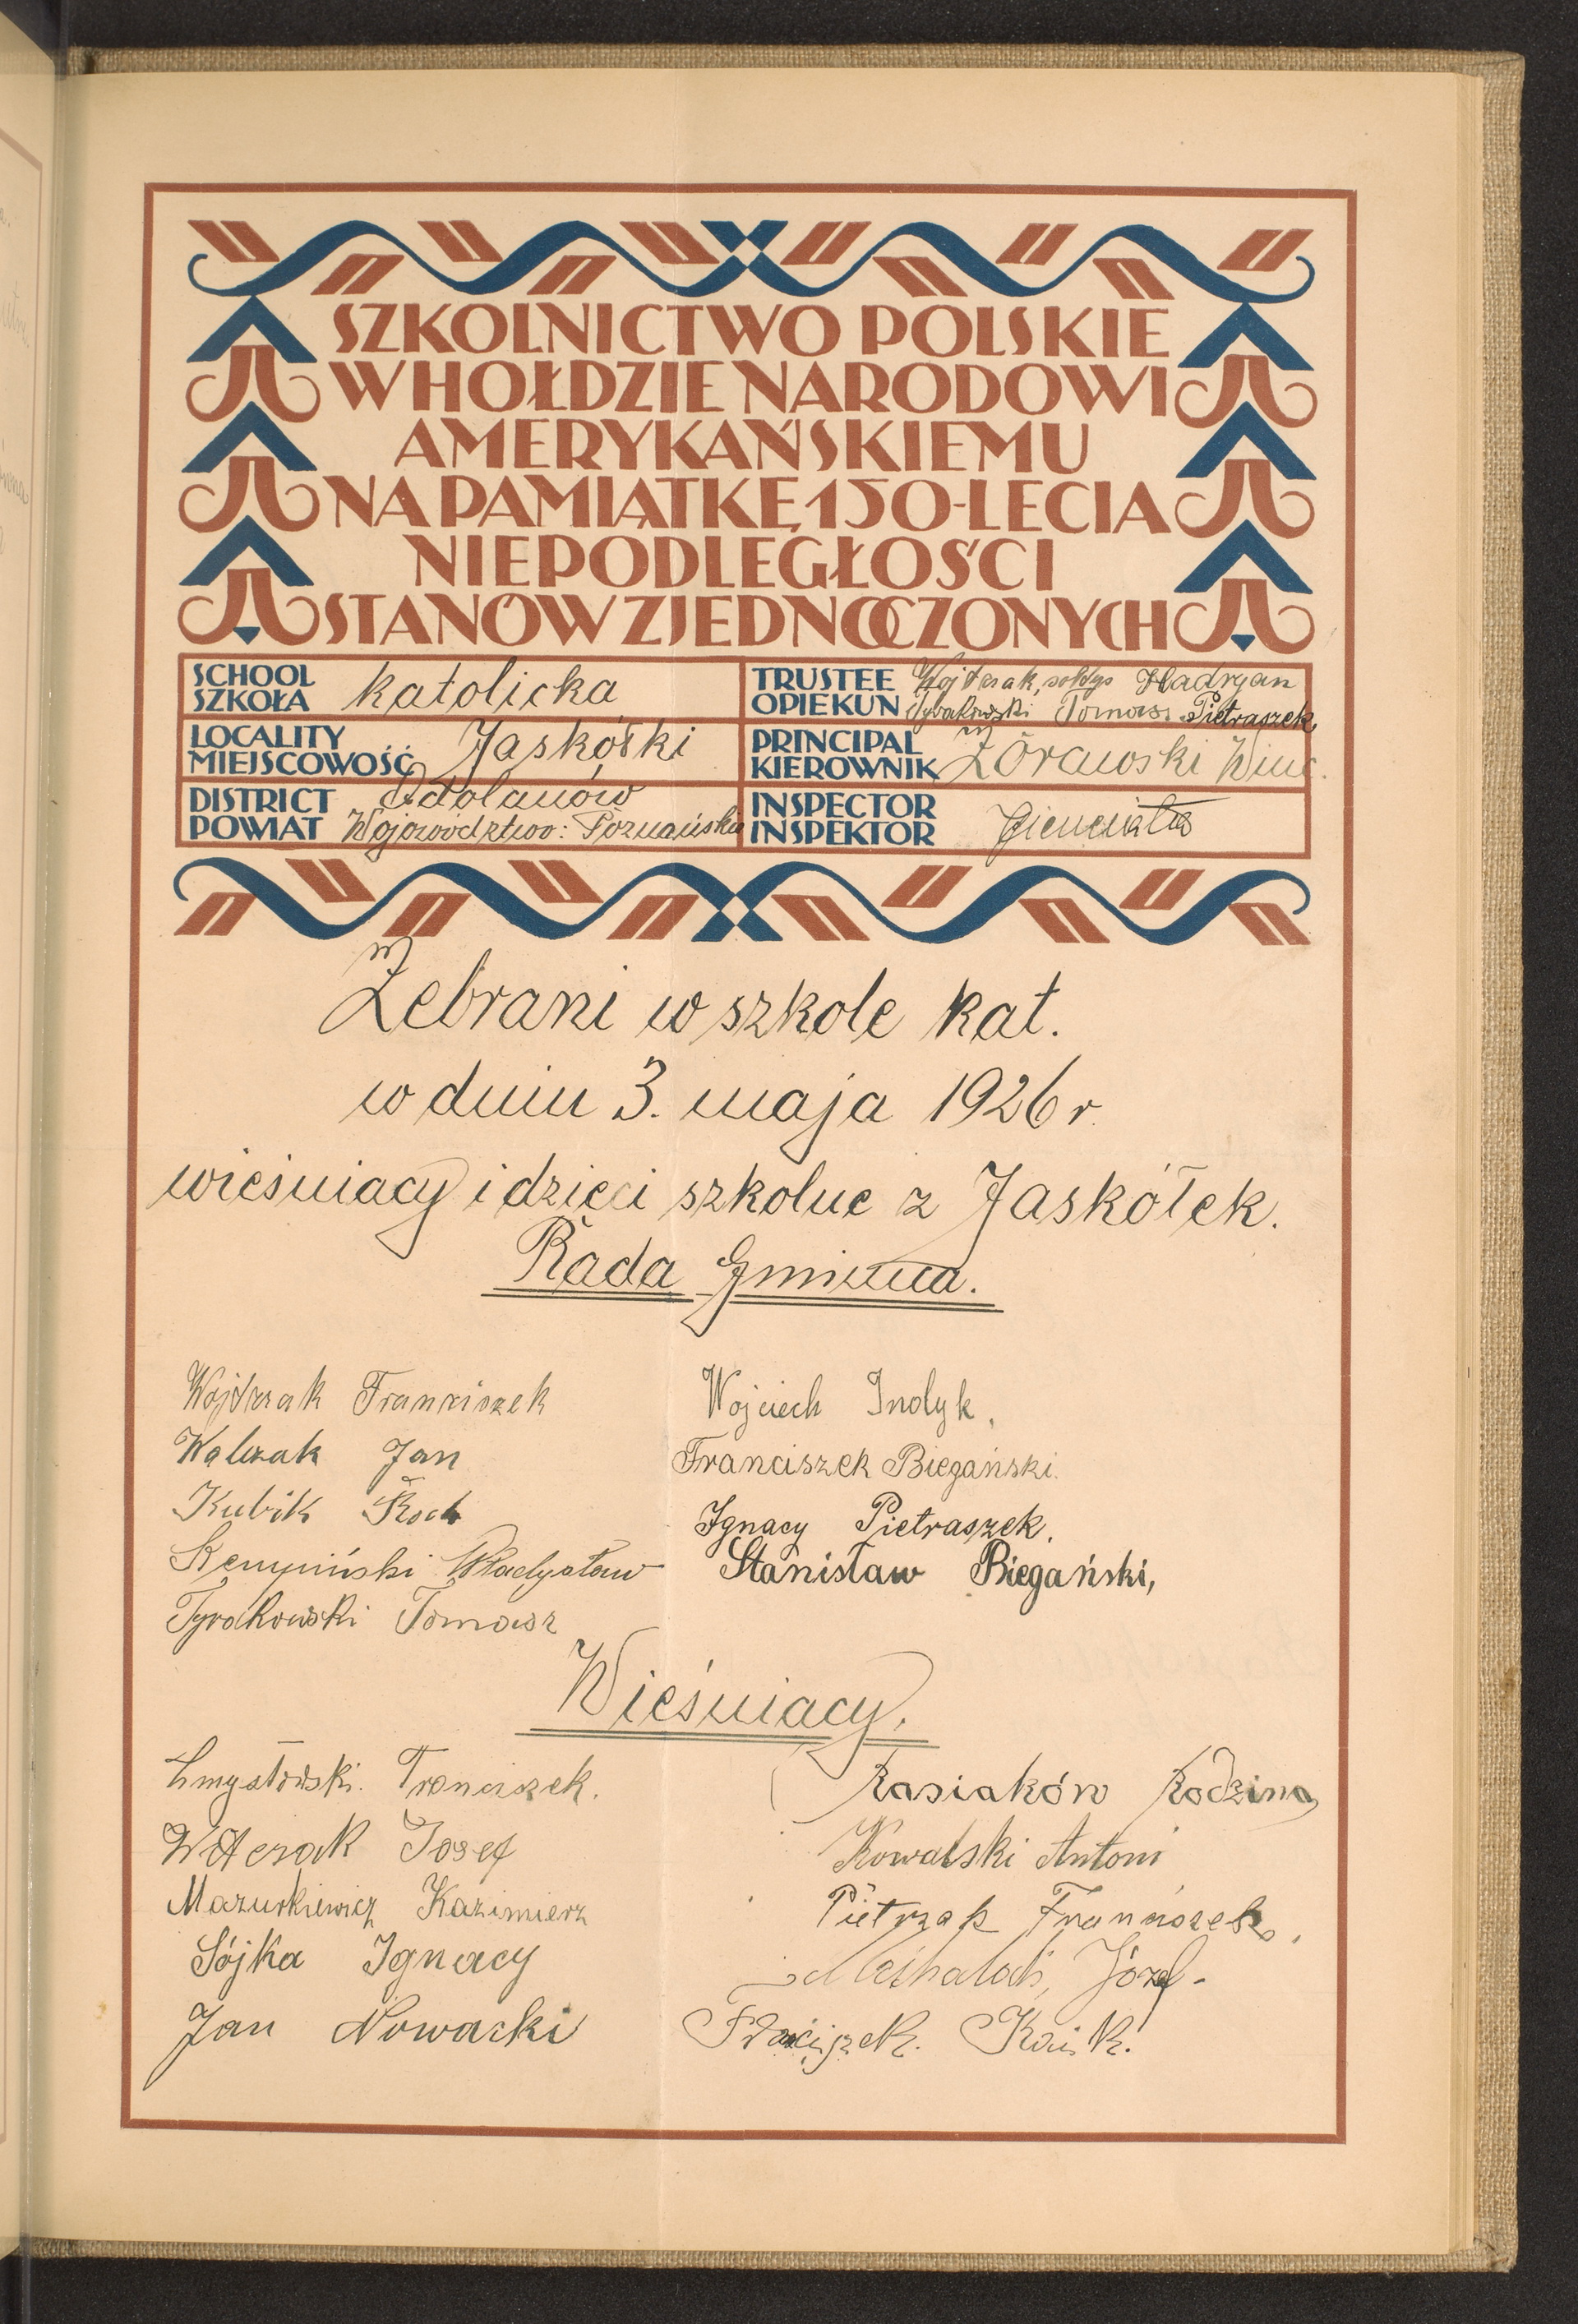 SZKOLNICTWO POLSKIE
W HOŁDZIE NARODOWI
AMERYKAŃSKIEMU
NA PAMIĄTKĘ 150-LECIA
NIEPODLEGŁOŚCI
STANÓW ZJEDNOCZONYCH
SCHOOL
SZKOŁA katolicka
LOCALITY
MIEJSCOWOŚĆ Jaskółki
DISTRICT Odolanów
POWIAT Województwo: Poznańskie
TRUSTEE Wojtczak, sołtys Hadryan
OPIEKUN Tyrakowski Tomasz Pietraszek
PRINCIPAL
KIEROWNIK Żórawski Winc.
INSPECTOR
INSPEKTOR
Zebrani w szkole kat.
w dniu 3. maja 1926 r.
wieśniacy i dzieci szkolne z Jaskółek.
Rada Gminna.
Wojtczak Franciszek
Walczak Jan
Kubik Roch
Kempiński Władysław
Tyrakowski Tomasz
Wojciech Indyk,
Franciszek Biegański.
Ignacy Pietraszek.
Stanisław Biegański,
Wieśniacy.
Zmyslowski. Franciszek.
Witczak Josef
Mazurkiewicz Kazimierz
Sójka Ignacy
Jan Nowacki
Kasiaków Rodzina
Kowalski Antoni
Pietrzak Franciszek,
Michalak, Józef.
Franciszek.